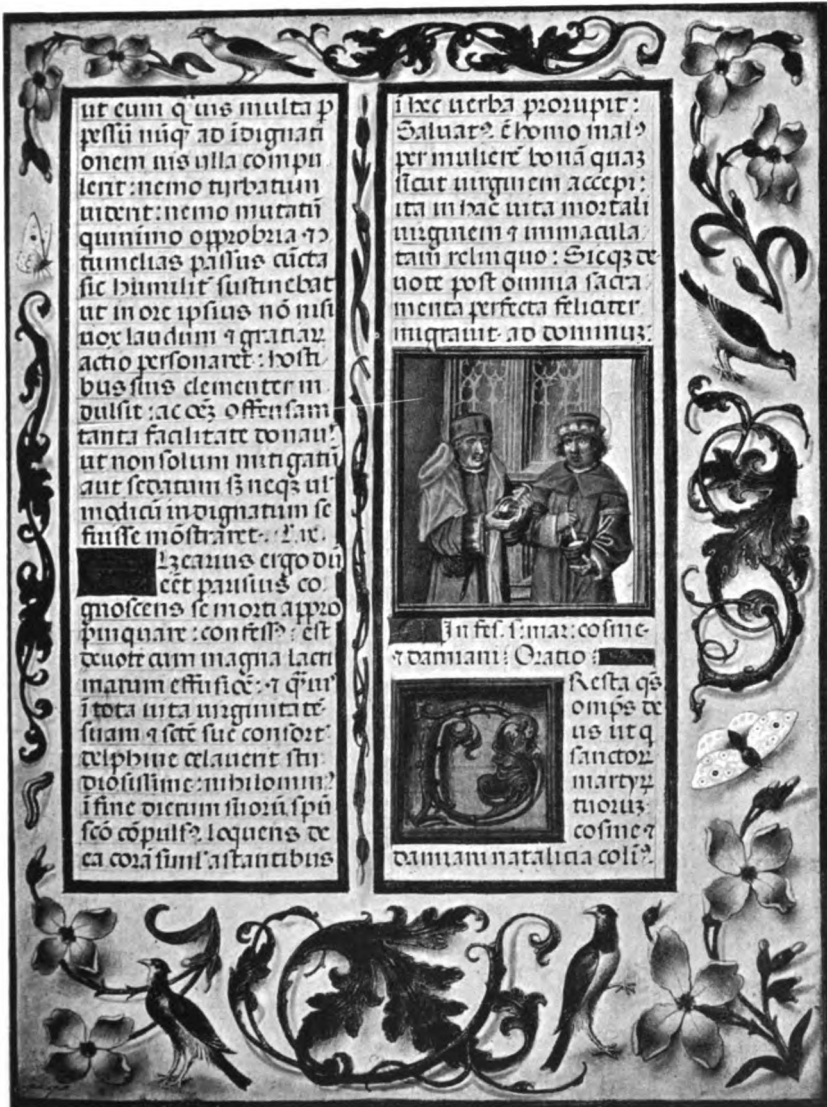 ut eum q̃uis multa p̱
pessũ nũq̃ ad ĩdignati
onem uis ulla compu
lerit : nemo turbatum
uiderit : nemo mutatũ
quinimo opprobria ⁊ ↄ
tumelias passus cũcta
sic humilit̃ sustinebat
ut in ore ipsius nõ nisi
uox laudum ⁊ gratiaꝝ
actio personaret : hosti
bus suis clementer in
dulsit : ac offensam
tanta facilitate donau᷑
ut non solum mitigatũ
aut sedatum sꝫ neqꝫ ul᷑
modicũ indignatum se
fuisse mõstraret .
lzearius ergo dũ
eẽt parisius co
gnoscens se morti appro
pinquare : confessꝰ est
deuote cum magna lacri
marum effusiõe : ⁊ q̃uis
ĩ tota uita uirginitatẽ
suam ⁊ scẽ sue consort᷑
delphine celauerit stu
diosissime : nihilominꝰ
ĩ fine dierum suorũ spũ
scõ cõpulsꝰ loquens de
ea corã simul᷑ astantibus
ĩ hec uerba prorupit :
Saluatꝰ ẽ homo malꝰ
per mulierẽ bonã quaꝫ
sicut uirginem accepi :
ita in hac uita mortali
uirginem ⁊ immacula
tam relinquo : Sicqꝫ de
uote post omnia sacra
menta perfecta feliciter
migrauit ad dominuꝫ :
In fes. s. mar : cosme
⁊ damiani : Oratio :
PResta q̃s
omp̃s de
us ut q
sanctoꝝ
martyꝝ
tuoruꝫ
cosme ⁊
damiani natalicia colimꝰ.